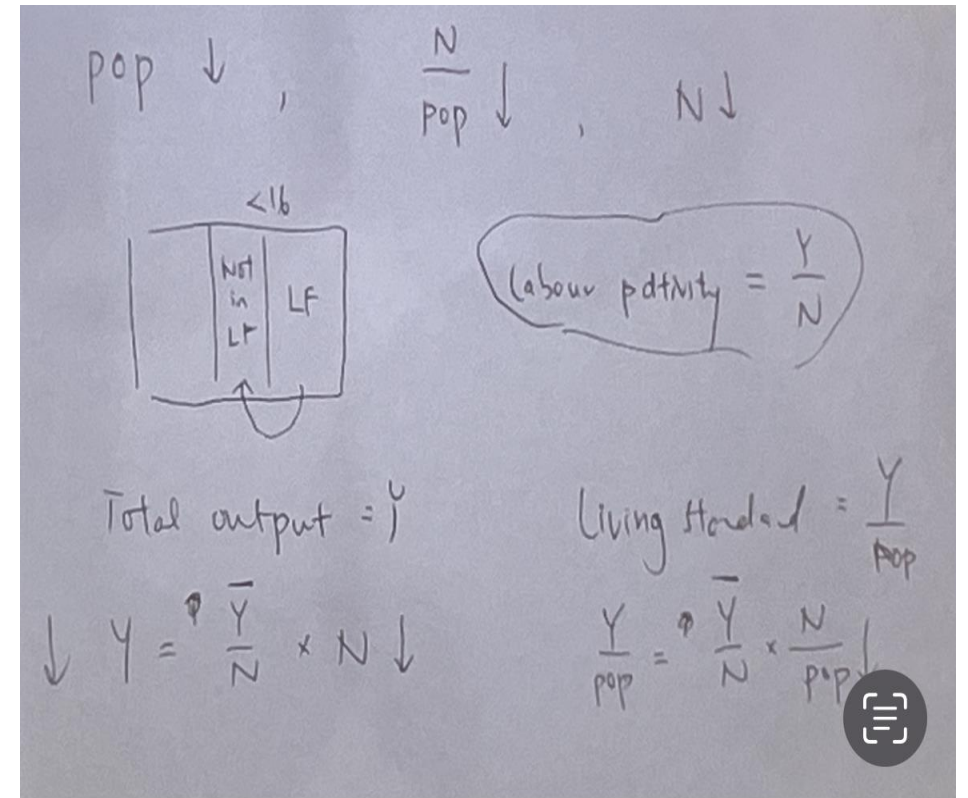 pop ↓ , N/pop ↓ , N ↓
<16
Not in LF
LF
Labour pdtivity = Y/N
Total output = Y
Living standard = Y/pop
↓ Y = Y/N × N ↓
Y/pop = Y/N × N/pop ↓